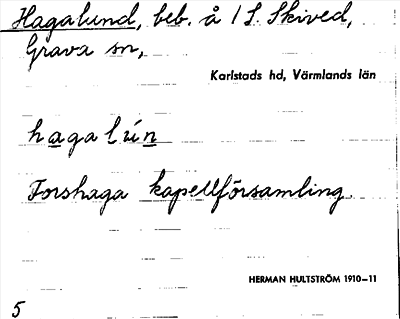 Hagalund, beb. å 1 S. Skived,
Grava sn,
Karlstads hd, Värmlands län
hagalún
Forshaga kapellförsamling.
HERMAN HULTSTRÖM 1910–11
5